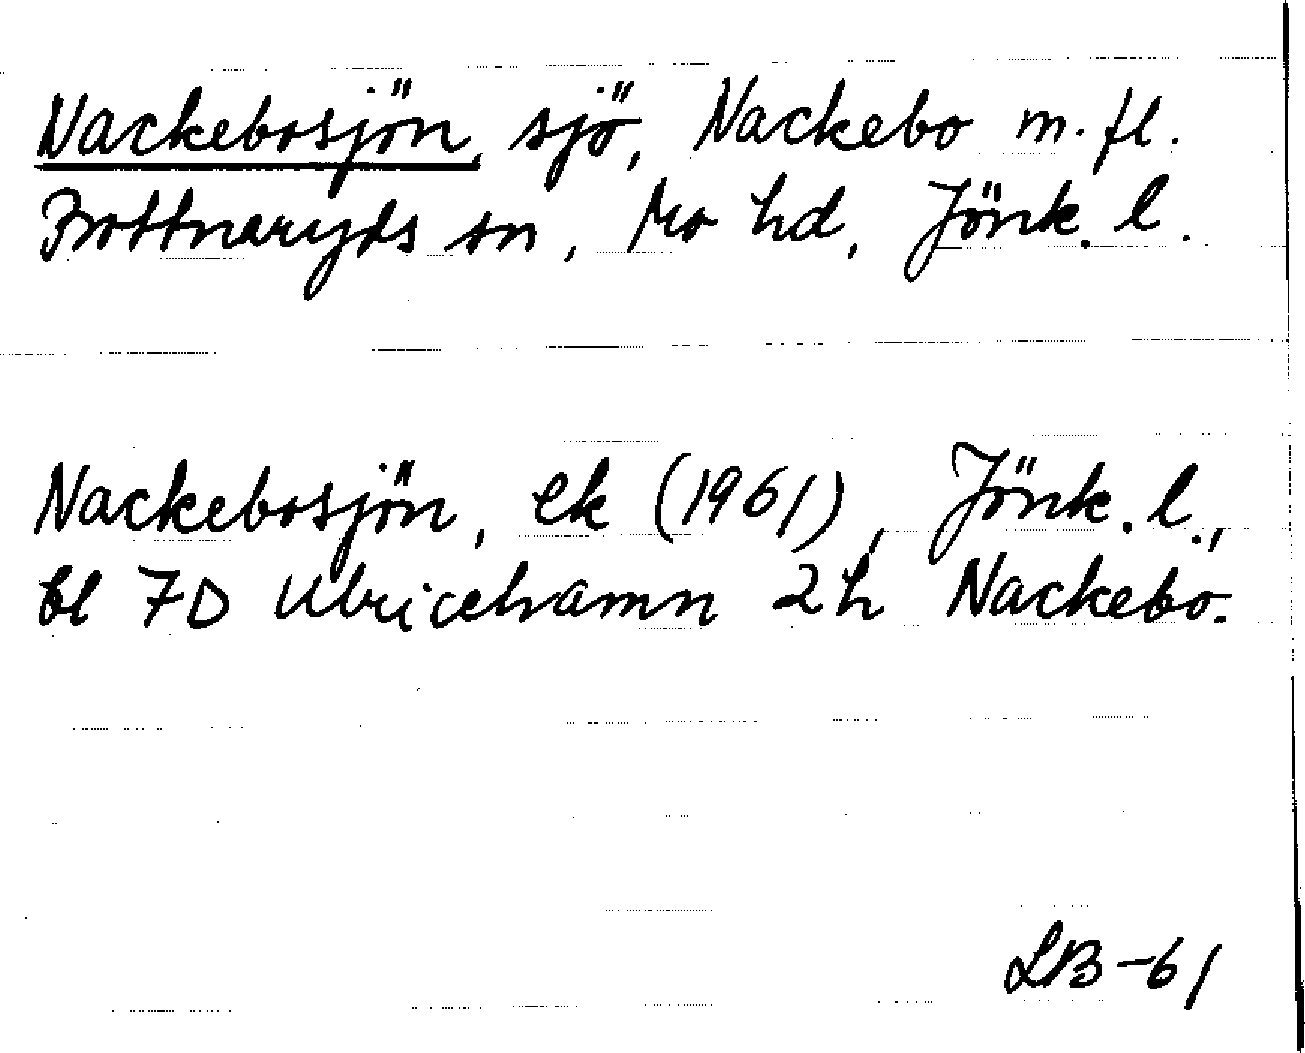 Nackebosjön, sjö, Nackebo m.fl.
Bottnaryds sn, Mo hd, Jönk. l.
Nackebosjön, ek (1961), Jönk. l.,
bl 7D Ulricehamn 2h Nackebo.
LB-61